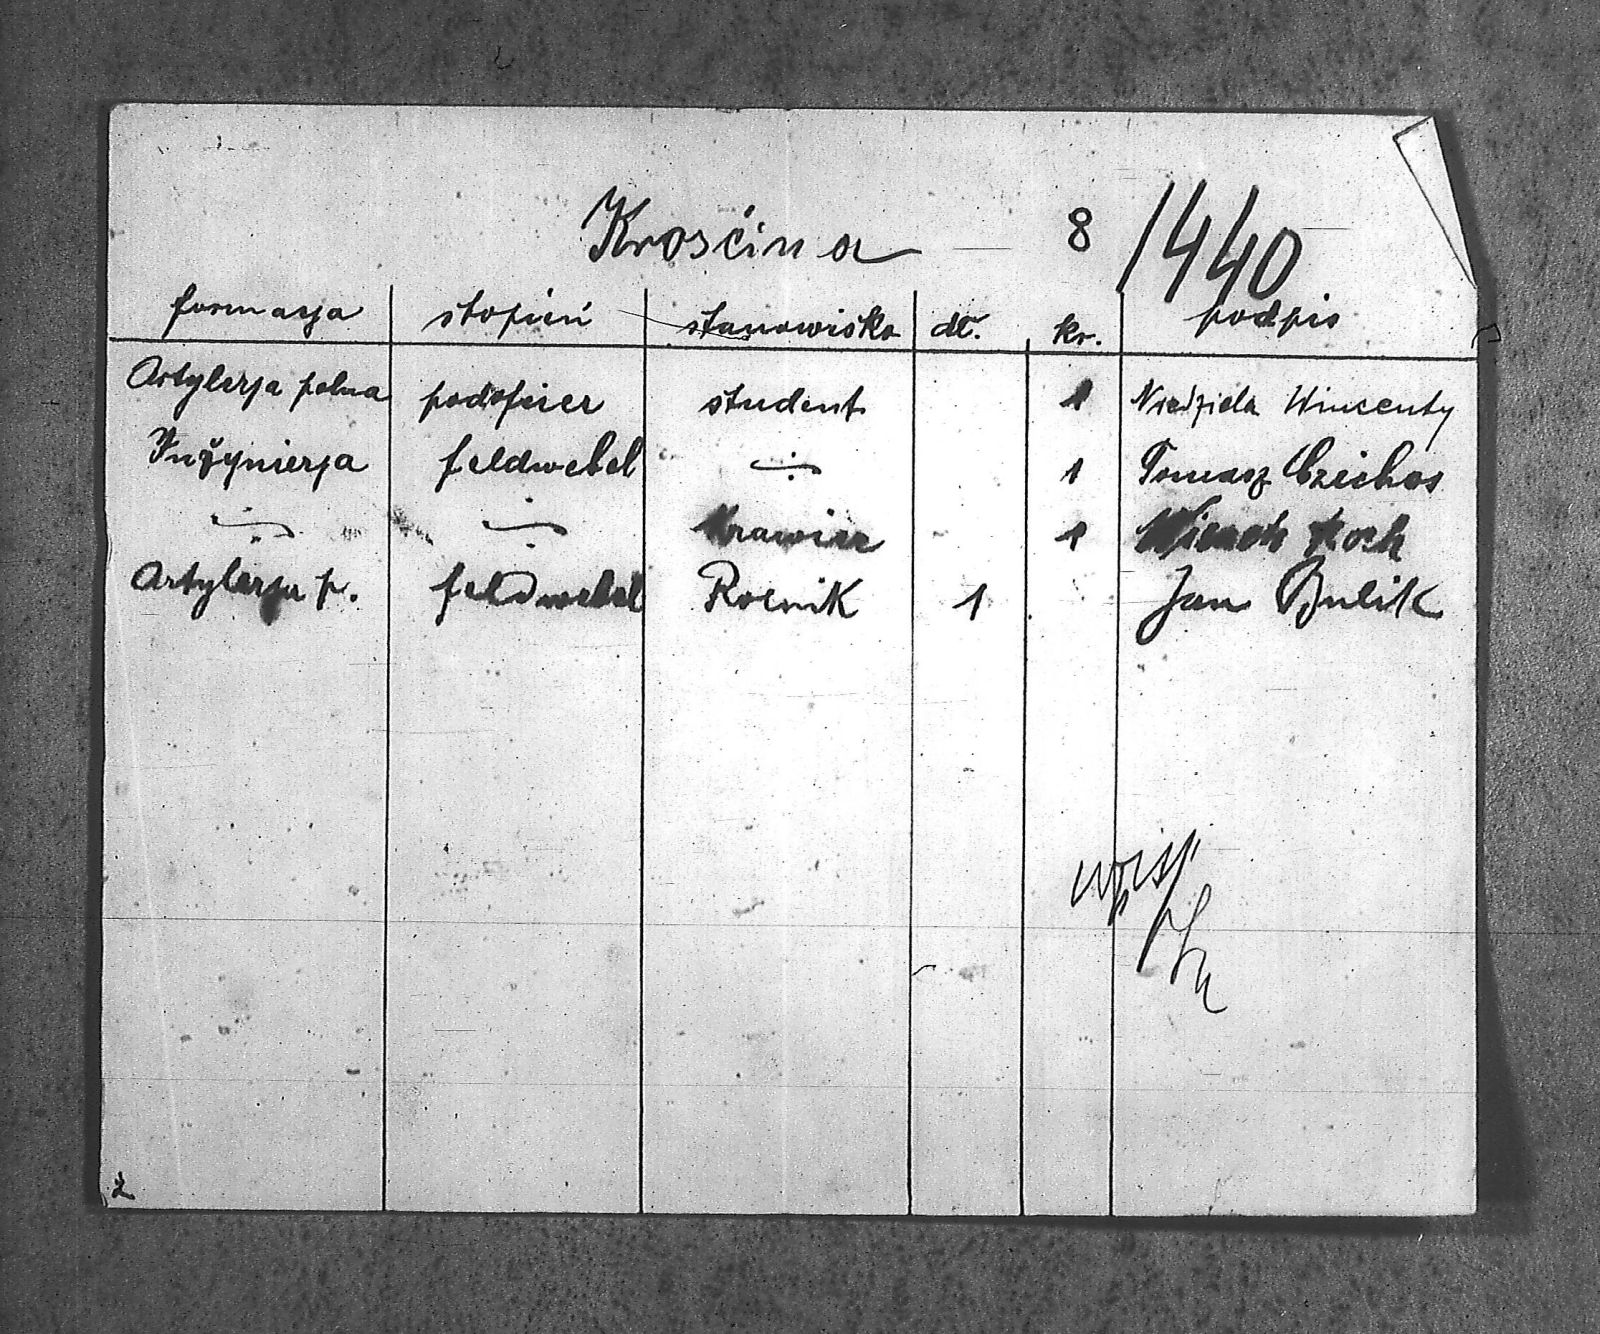 Krośćina 8 /440
formacja stopień stanowisko dł. kr. podpis
Artylerja polna podoficer student 1 Niedziela Wincenty
Inżynierja feldwebel -:- 1 Tomasz Czichos
-:- -:- Krawiec 1 Roch
Artylerja p. feldwebel Rolnik 1 Jan Bulik
2